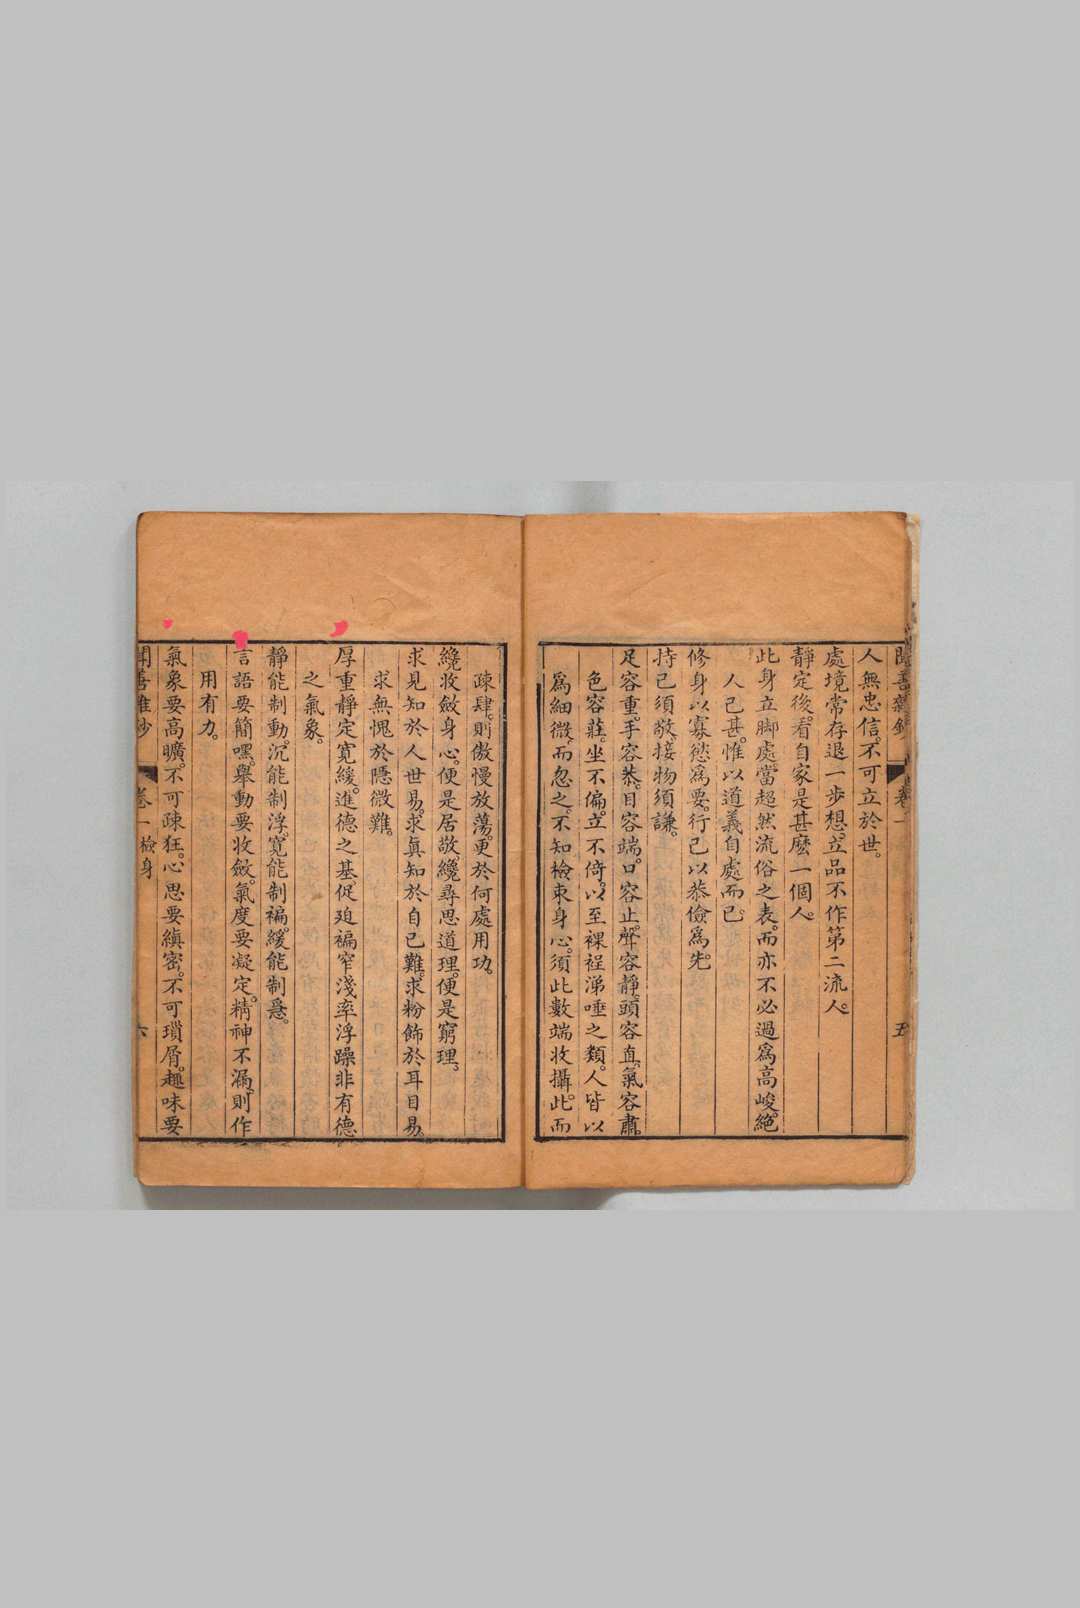 人無忠信。不可立於世。
處境常存退一步想。立品不作第二流人。
靜定後。看自家是甚麽一個人。
此身立脚處。當超然流俗之表。而亦不必過爲高峻。絕
人已甚。惟以道義自處而已。
修身以寡愆爲要。行己以恭儉爲先。
持己須敬。接物須謙。
足容重。手容恭。目容端。口容止。聲容靜。頭容直。氣容肅。
色容莊。坐不偏。立不倚。以至裸裎涕唾之類。人皆以
爲細微而忽之。不知檢束身心。須此數端收攝。此而
疎肆。則傲慢放蕩。更於何處用功。
纔收斂身心。便是居敬。纔尋思道理。便是窮理。
求見知於人世易。求眞知於自己難。求粉飾於耳目易。
求無愧於隱微難。
厚重靜定寬緩。進德之基。促迫褊窄淺率浮躁非有德
之氣象。
靜能制動。沉能制浮。寬能制褊。緩能制急。
言語要簡嘿。舉動要收斂。氣度要凝定。精神不漏。則作
用有力。
氣象要高曠。不可疎狂。心思要縝密。不可瑣屑。趣味要
卷一 檢身
六